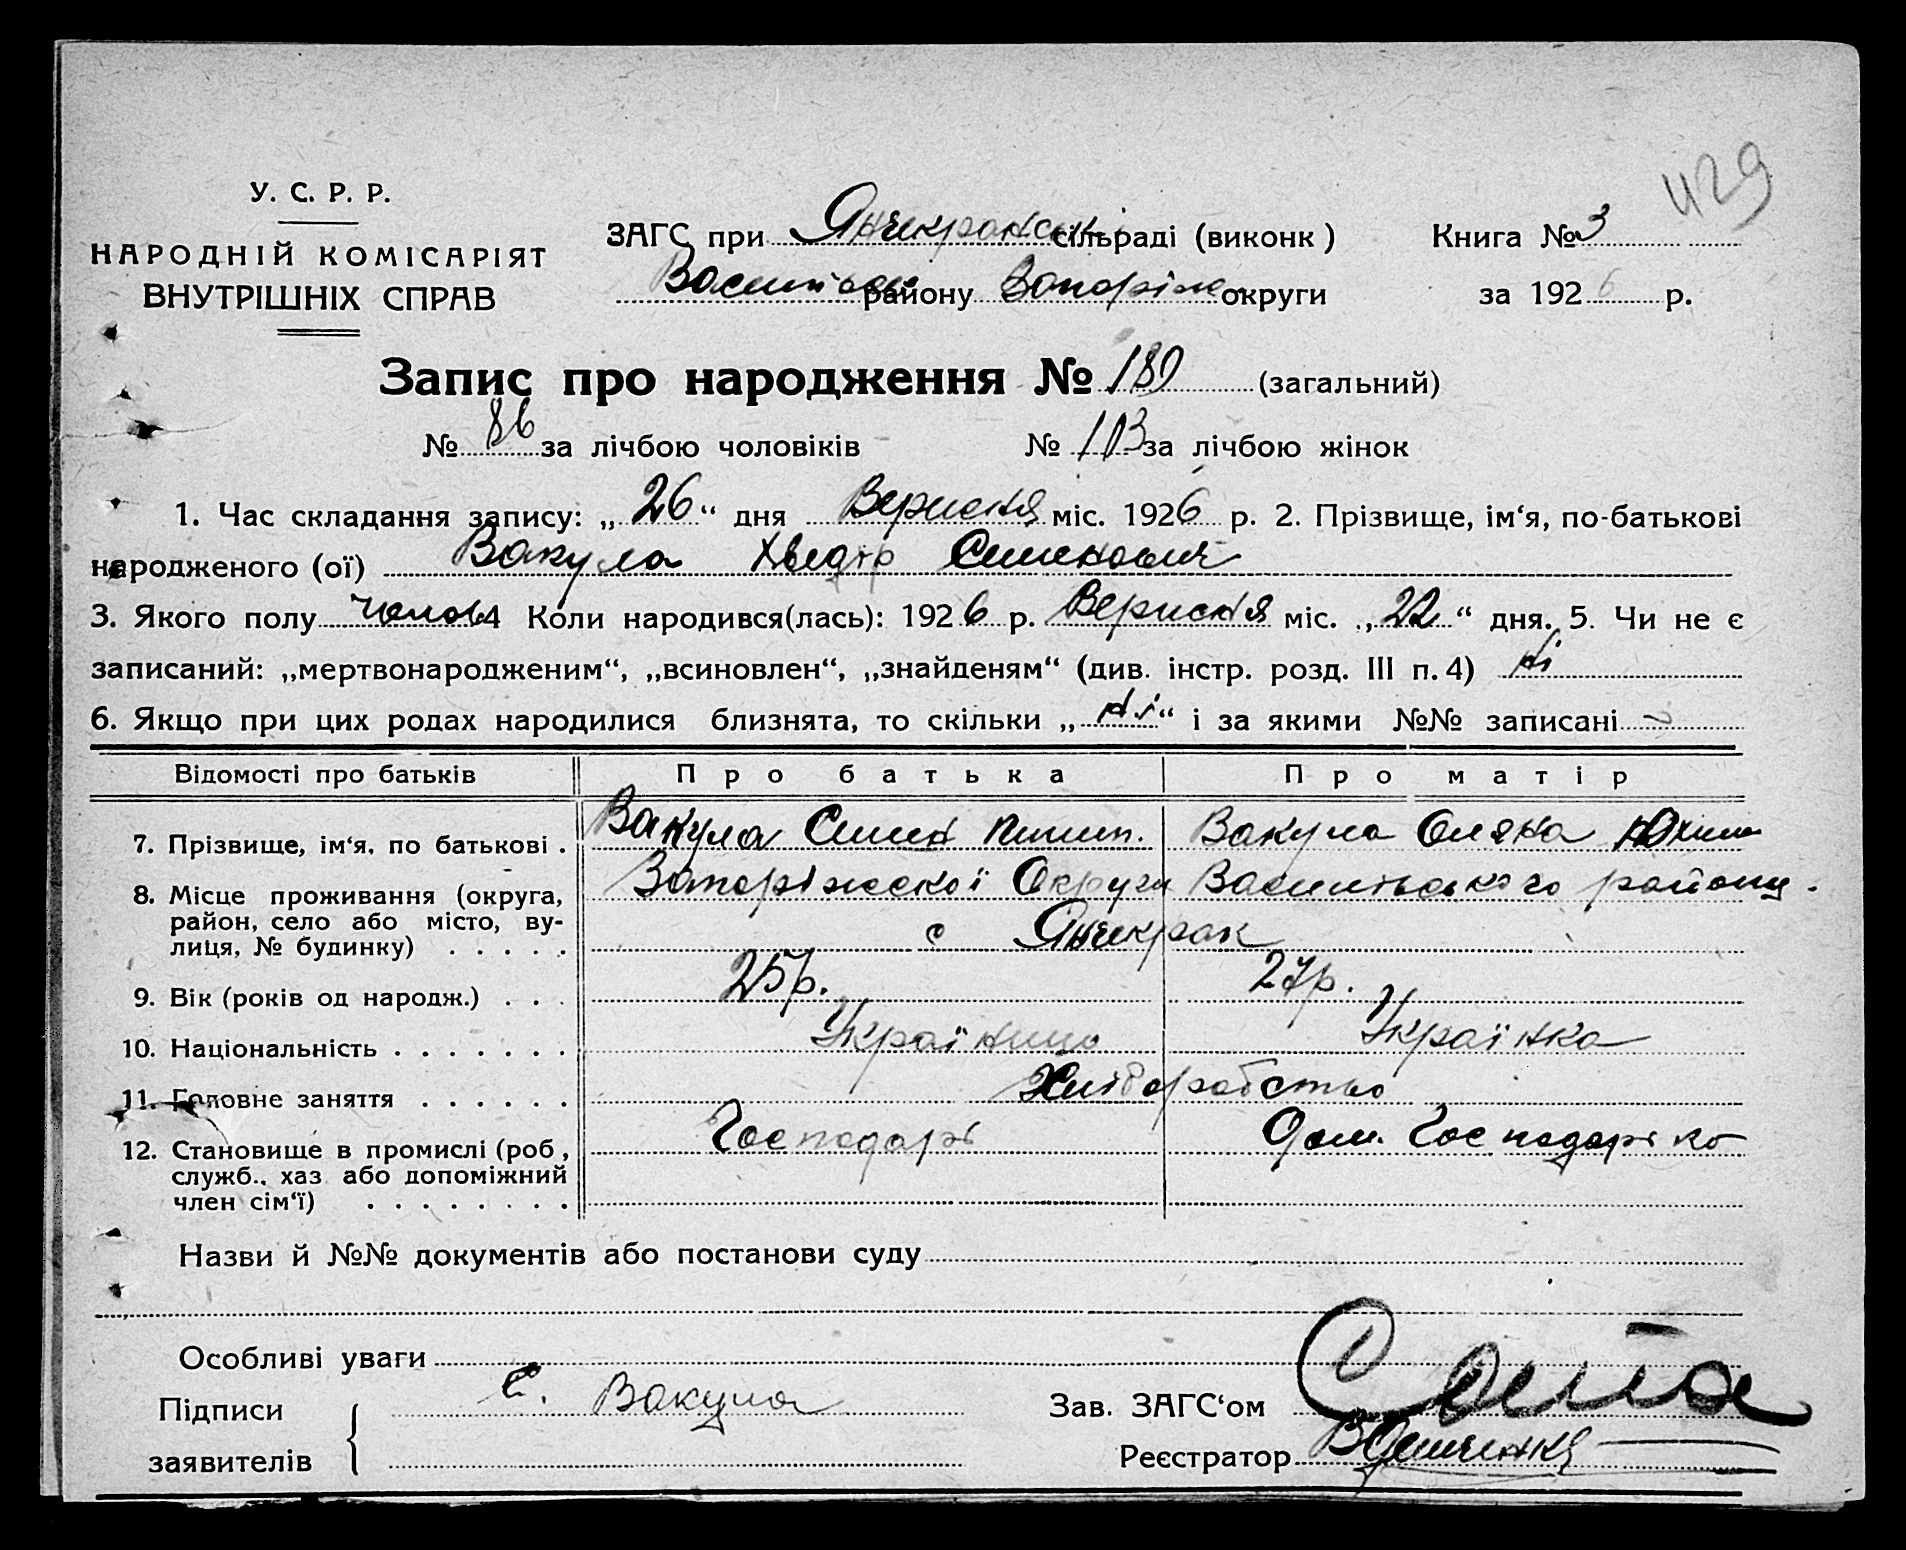 429
У. С. Р. Р.
НАРОДНІЙ КОМІСАРІЯТ
ВНУТРІШНІХ СПРАВ
ЗАГС при Янчекранськ. сільраді (виконк)
Книга № 3
Василівськ. району Запоріж. округи
за 1926 р.
Запис про народження № 189 (загальний)
№ 86 за лічбою чоловіків № 103 за лічбою жінок
1. Час складання запису: „26“ дня Вересня міс. 1926 р. 2. Прізвище, ім‘я, по-батькові
народженого (ої) Вакула Хведір Семенович
3. Якого полу чолов 4 Коли народився(лась): 1926 р. Вересня міс. „22“ дня. 5. Чи не є
записаний: „мертвонародженим“, „всиновлен“, „знайденям“ (див. інстр. розд. III п. 4) ні
6. Якщо при цих родах народилися близнята, то скільки „ні“ і за якими №№ записані
Відомості про батьків Про батька Про матір
7. Прізвище, ім‘я, по батькові . Вакула Семен Вакула Оляна Юхим
8. Місце проживання (округа, район, село або місто, ву-лиця, № будинку) Запоріжської Округи Василівського району.
с Янчекрак
9. Вік (років од народж.) . . . 25 р. 27 р.
10. Національність . . . . . . . Українець Українка
11. Головне заняття . . . . . . Хліборобство
12. Становище в промислі (роб, служб., хаз або допоміжний член сім‘ї) . . . . . . . . Господарь Дом. Господарка
Назви й №№ документів або постанови суду
Особливі уваги
Підписи
заявителів
С. Вакула
Зав. ЗАГС‘ом
Реєстратор